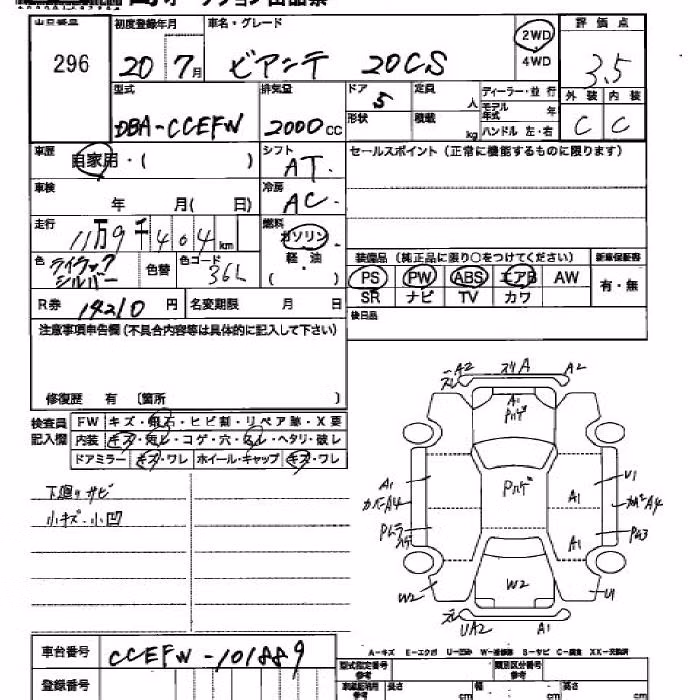 出品番号 初度登録年月 車名・グレード 評価点
296 20 7月 ビアンテ 20CS 2WD 3.5
4WD
型式 排気量 ドア 定員 ディーラー・並行 外装 内装
DBA-CCEFW 2000cc 5 人 モデル年式 年 C C
形状 積載 kg ハンドル 左・右
車歴 自家用・( ) シフト AT. セールスポイント(正常に機能するものに限ります)
車検 年 月( 日) 冷房 AC.
走行 11万9千404km 燃料 ガソリン 軽油 ( )
色 ライラックシルバー 色替 色コード 36L
装備品(純正品に限り○をつけてください) 新車保証書
PS PW ABS エアB AW 有・無
SR ナビ TV カワ
R券 14210円 名変期限 月 日 後日品
注意事項申告欄(不具合内容等は具体的に記入して下さい)
修復歴 有 〔箇所 〕
検査員記入欄
FW キズ・飛石・ヒビ割・リペア跡・X要
内装 キズ・汚レ・コゲ・穴・スレ・ヘタリ・破レ
ドアミラー キズ・ワレ ホイール・キャップ キズ・ワレ
下廻りサビ
小キズ・小凹
A2 スリA A2
A1
Pハゲ
A1 Pハゲ U1
カバーA4 A1 カバーA4
A1
W2 W2 U1
UA2 A1
A-キズ E-エクボ U-凹み W-補修跡 S-サビ C-腐食 XX-交換済
車台番号 CCEFW-101889
登録番号
型式指定番号 類別区分番号
長さ cm 幅 cm 高さ cm